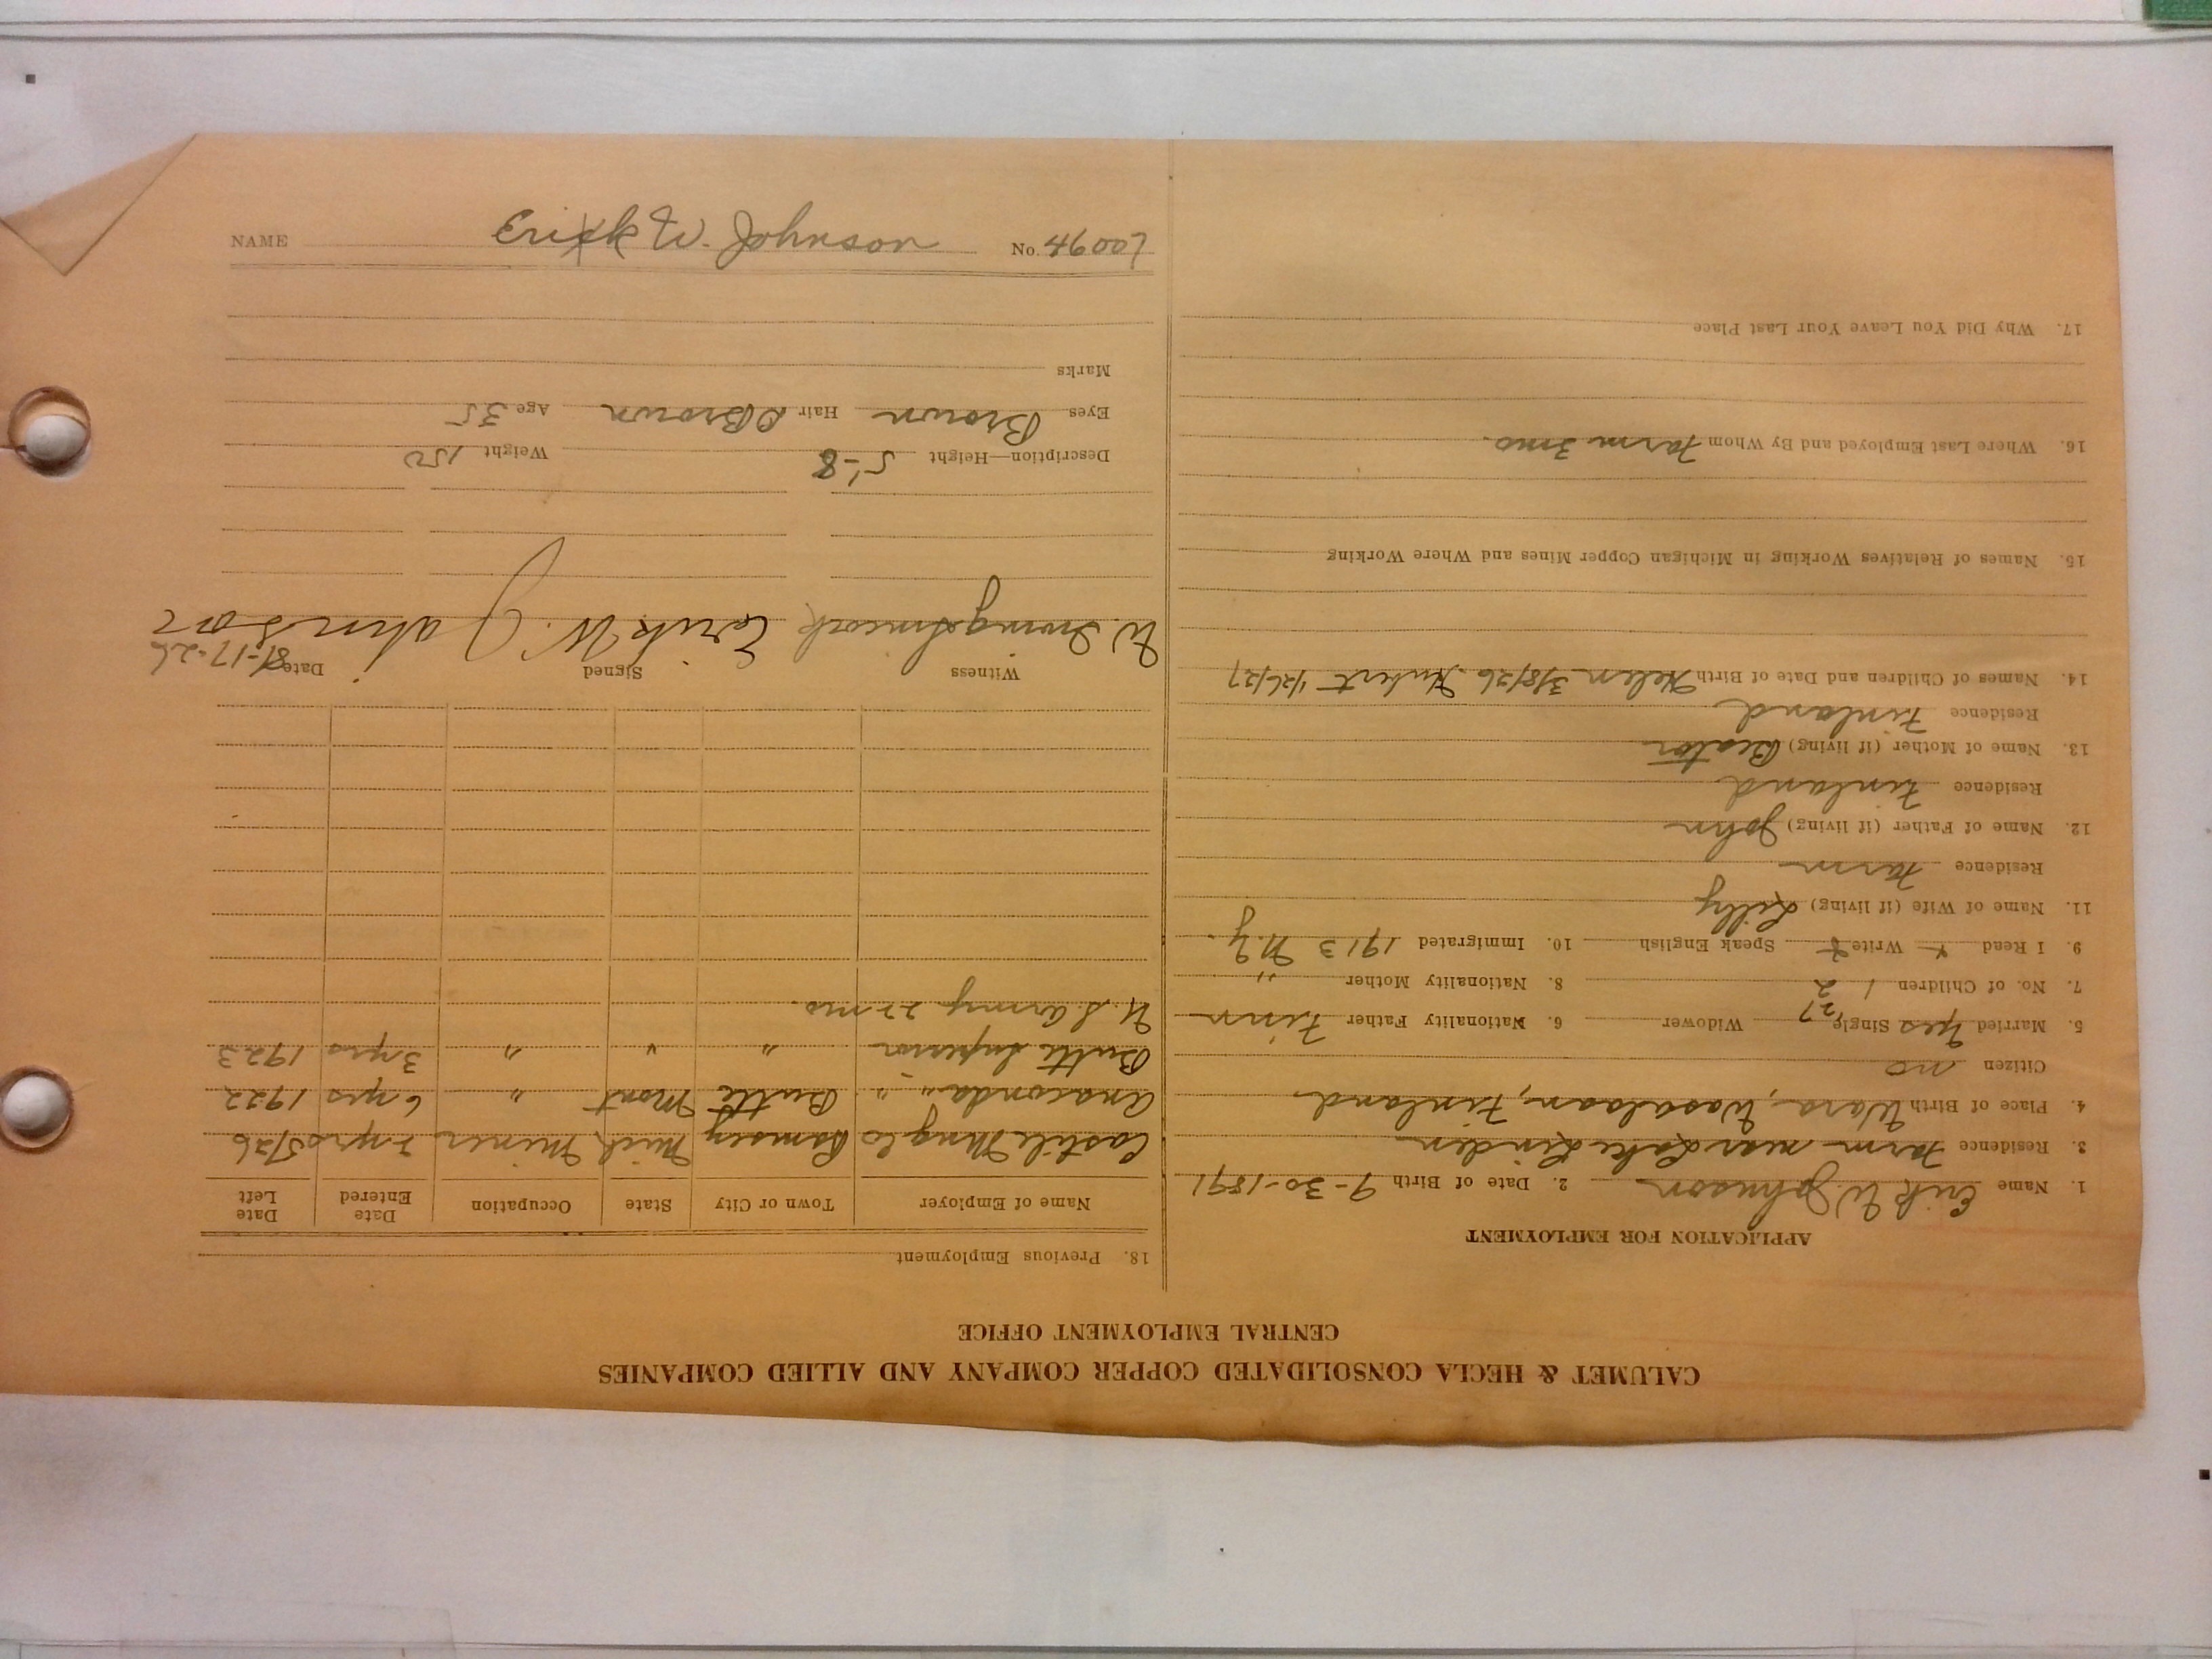 CALUMET & HECLA CONSOLIDATED COPPER COMPANY AND ALLIED COMPANIES
CENTRAL EMPLOYMENT OFFICE
APPLICATION FOR EMPLOYMENT
1. Name Erik W. Johnson 2. Date of Birth 9-30-1891
3. Residence Farm near Lake Linden
4. Place of Birth Wasa, Finland
Citizen no
5. Married Yes Single '27 Widower 6. Nationality Father Finn
7. No. of Children 1 2 8. Nationality Mother "
9. I Read Write Speak English 10. Immigrated 1913 N.Y.
11. Name of Wife (if living) Lilly
Residence Farm
12. Name of Father (if living) John
Residence Finland
13. Name of Mother (if living)
Residence Finland
14. Names of Children and Date of Birth Helen 3/8/26 Hubert 1/26/27
15. Names of Relatives Working in Michigan Copper Mines and Where Working
16. Where Last Employed and By Whom Farm 3 mo.
17. Why Did You Leave Your Last Place
18. Previous Employment
Name of Employer Town or City State Occupation Date Entered Date Left
Castile Mng Co Ramsey Mich Miner 2 yrs 5/26
Anaconda " " Butte Mont " 6 yrs 1922
Butte Superior " " " 3 yrs 1923
U. S. Army 22 mo.
Witness Signed Date 8-17-26
W. Erik W. Johnson
Description—Height 5'-8 Weight 150
Eyes Brown Hair D Brown Age 35
Marks
NAME Erik W. Johnson No.